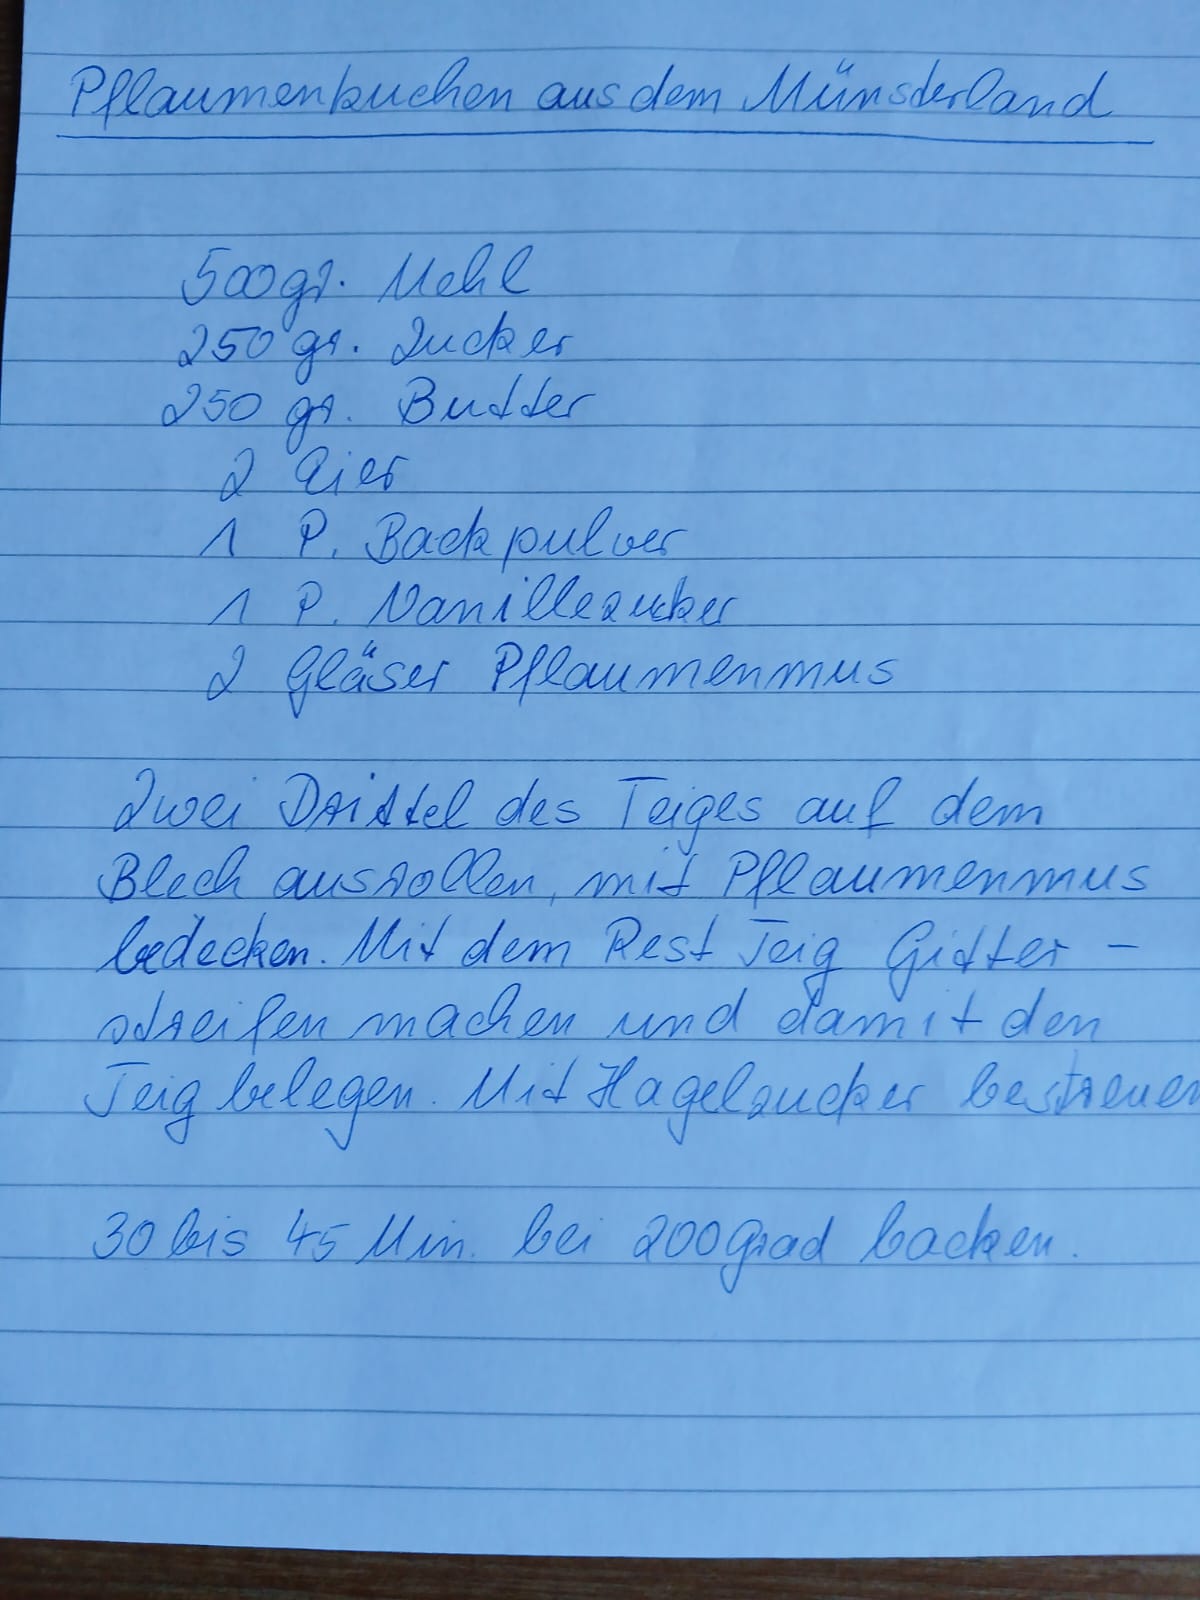 Pflaumenkuchen aus dem Münsterland
500 gr. Mehl
250 gr. Zucker
250 gr. Butter
2 Eier
1 P. Backpulver
1 P. Vanillezucker
2 Gläser Pflaumenmus
Zwei Drittel des Teiges auf dem
Blech ausrollen, mit Pflaumenmus
bedecken. Mit dem Rest Teig Gitter-
streifen machen und damit den
Teig belegen. Mit Hagelzucker bestreuen
30 bis 45 Min. bei 200 Grad backen.